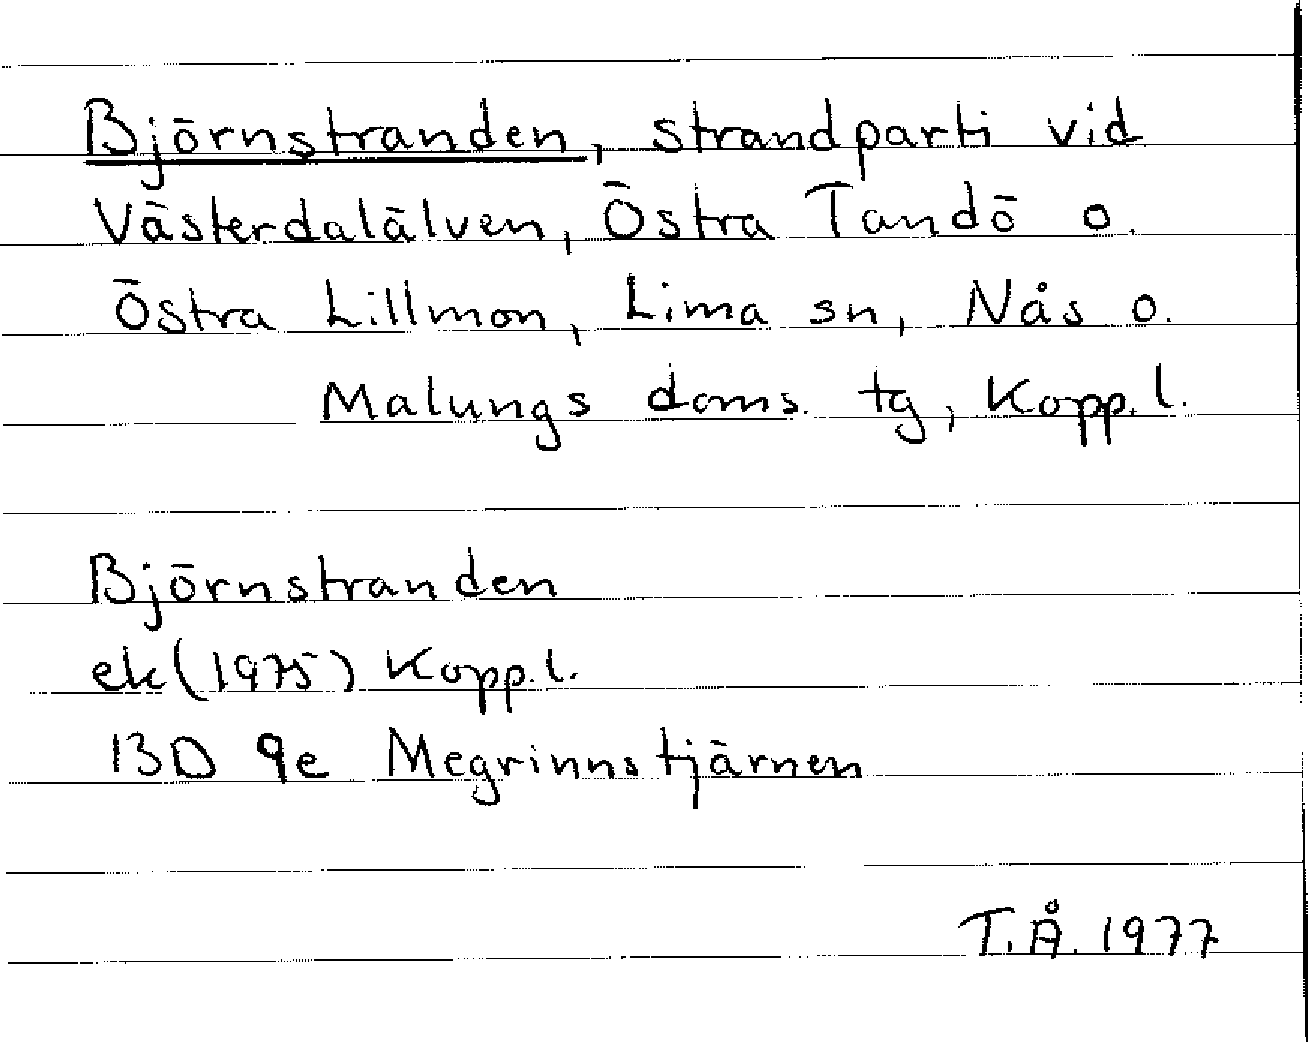 Björnstranden, strandparti vid
Västerdalälven, Östra Tandö o.
Östra Lillmon, Lima sn, Nås o.
Malungs doms. tg, Kopp.l.
Björnstranden
ek (1975) Kopp.l.
13D 9e Megrinnstjärnen
T.Å. 1977